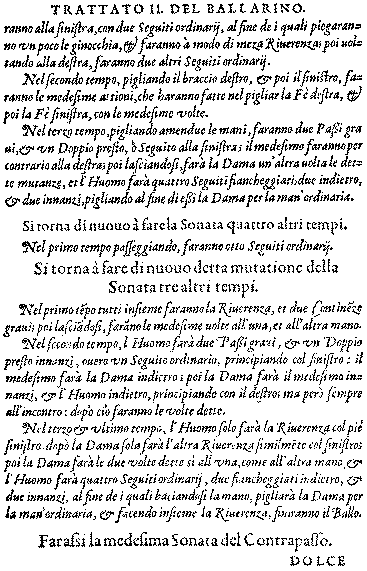 TRATTATO II. DEL BALLARINO.
ranno alla sinistra, con due Seguiti ordinarij, al fine de i quali piegaran-
no vn poco le ginocchia, & faranno à modo di meza Riuerenza; poi vol-
tando alla destra, faranno due altri Seguiti ordinarij.
Nel secondo tempo, pigliando il braccio destro, & poi il sinistro, fa-
ranno le medesime attioni, che haranno fatte nel pigliar la Fè destra, &
poi la Fè sinistra, con le medesime volte.
Nel terzo tempo, pigliando amendue le mani, faranno due Passi gra
ui, & vn Doppio presto, ò Seguito alla sinistra; il medesimo faranno per
contrario alla destra; poi lasciandosi, farà la Dama un'altra uolta le det-
te mutanze, et l'Huomo farà quattro Seguiti fiancheggiati, due indietro,
& due innanzi, pigliando al fine di essi la Dama per la man'ordinaria.
Si torna di nuouo à fare la Sonata quattro altri tempi.
Nel primo tempo passeggiando, faranno otto Seguiti ordinarij.
Si torna à fare di nuouo detta mutatione della
Sonata tre altri tempi.
Nel primo tẽpo tutti insieme faranno la Riuerenza, et due Continẽze
graui; poi lasciãdosi, farãno le medesime uolte all'una, et all'altra mano.
Nel secondo tempo, l'Huomo farà due Passi graui, & vn Doppio
presto innanzi, ouero vn Seguito ordinario, principiando col sinistro: il
medesimo farà la Dama indietro; poi la Dama farà il medesimo in-
nanzi, & l'Huomo indietro, principiando con il destro; ma però sempre
all'incontro: dopò ciò faranno le volte dette.
Nel terzo & vltimo tempo, l'Huomo solo farà la Riuerenza col piè
sinistro, dopò la Dama sola farà l'altra Riuerenza similmẽte col sinistro;
poi la Dama farà le due volte dette sì all'vna, come all'altra mano &
l'Huomo farà quattro Seguiti ordinarij, due fiancheggiati indietro, &
due innanzi, al fine de i quali baciandosi la mano, pigliarà la Dama per
la man'ordinaria, & facendo insieme la Riuerenza, finiranno il Ballo.
Farassi la medesima Sonata del Contrapasso.
DOLCE